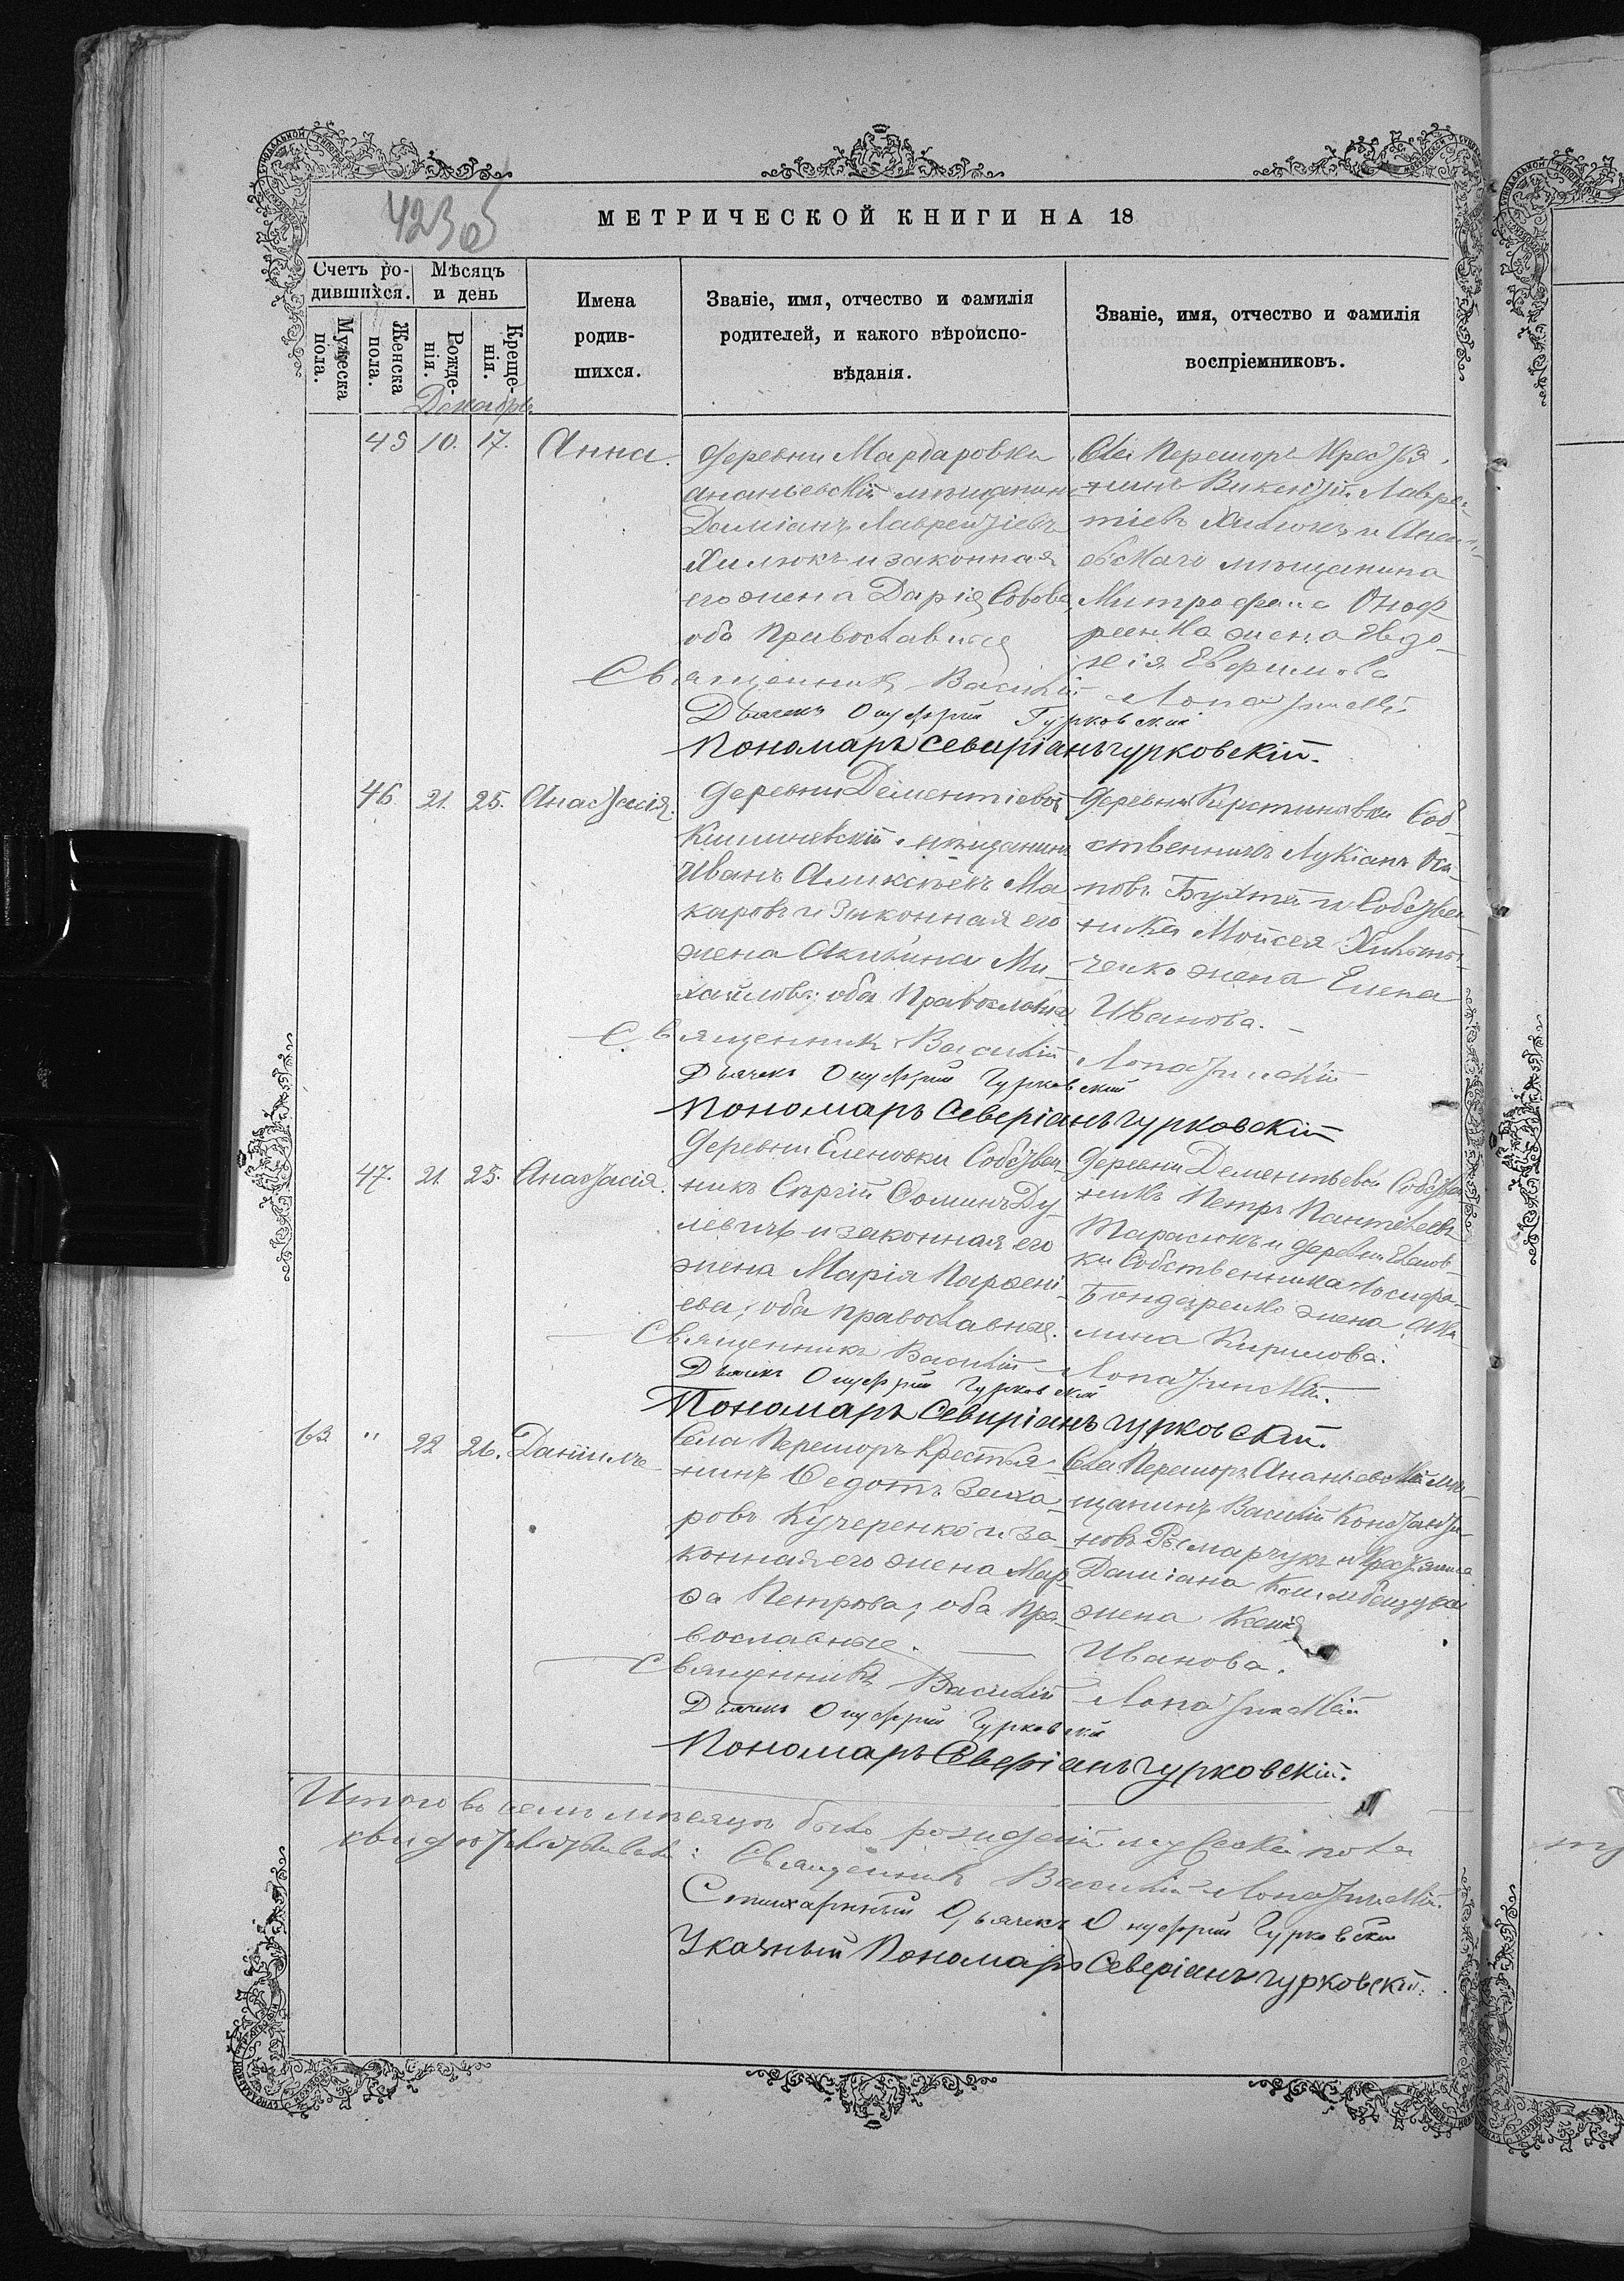 423об
МЕТРИЧЕСКОЙ КНИГИ НА 18
Счетъ ро-
дившихся.
Мѣсяцъ
и день
Мужеска
пола.
Женска
пола.
Рожде-
нія.
Креще-
нія.
Имена
родив-
шихся.
Званіе, имя, отчество и фамилія
родителей, и какого вѣроиспо-
вѣданія.
Званіе, имя, отчество и фамилія
воспріемниковъ.
Декабрь
45 10. 17. Анна.
деревни Мардаровки
ананьевскій мѣщанинъ
Даміанъ Лаврентіевъ
Хилюкъ и законная
его жена Дарія
оба православные
Села Перешоръ крестья-
нинъ Викентій Лаврен-
тіевъ Хилюкъ и Анань-
евскаго мѣщанина
Митрофана Оноф-
реенка жена Явдо-
хія Евфимова
Священникъ Василій Лопатинскій
Дьячекъ Онуфрій Гурковскій
Пономарь Северіанъ Гурковскій.
46 21. 25. Анастасія.
деревни Дементіевой
Кишиневскій мѣщанинъ
Иванъ Алексѣевъ Ма-
каровъ и законная его
жена Акилина Ми-
хайлова; оба православные
деревни Кирстиновки Соб-
ственникъ Лукіанъ Оси-
повъ и Собствен-
ника Мойсея
жена Елена
Иванова.
Священникъ Василій Лопатинскій
Дьячекъ Онуфрій Гурковскій
Пономарь Северіанъ Гурковскій
47. 21. 25. Анастасія.
деревни Еленовки Собствен-
никъ Сергій Фоминъ Ду-
левичъ и законная его
жена Марія Парфені-
ева; оба православные.
деревни Дементьевой Собствен-
никъ Петръ Пантелеевъ
Тарасюкъ и деревни Еленов-
ки Собственника
Бондаренко жена Аки-
лина Кирилова.
Священникъ Василій Лопатинскій.
Дьячекъ Онуфрій Гурковскій
Пономарь Северіанъ Гурковскій.
63 " 22 26. Даніилъ
Села Перешоръ крестья-
нинъ Ѳедотъ Заха-
ровъ Кучеренко и за-
конная его жена Мар-
ѳа Петрова; оба пра-
вославные.
Села Перешоръ Ананьевскій мѣ-
щанинъ Василій Константи-
новъ и крестьянина
Даміана
жена Ксенія
Иванова.
Священникъ Василій Лопатинскій
Дьячекъ Онуфрій Гурковскій
Пономарь Северіанъ Гурковскій.
Итого въ семъ мѣсяцѣ было рожденій мужеска пола
Священникъ Василій Лопатинскій.
Стихарный Дьячекъ Онуфрій Гурковскій
Указный Пономарь Северіанъ Гурковскій.